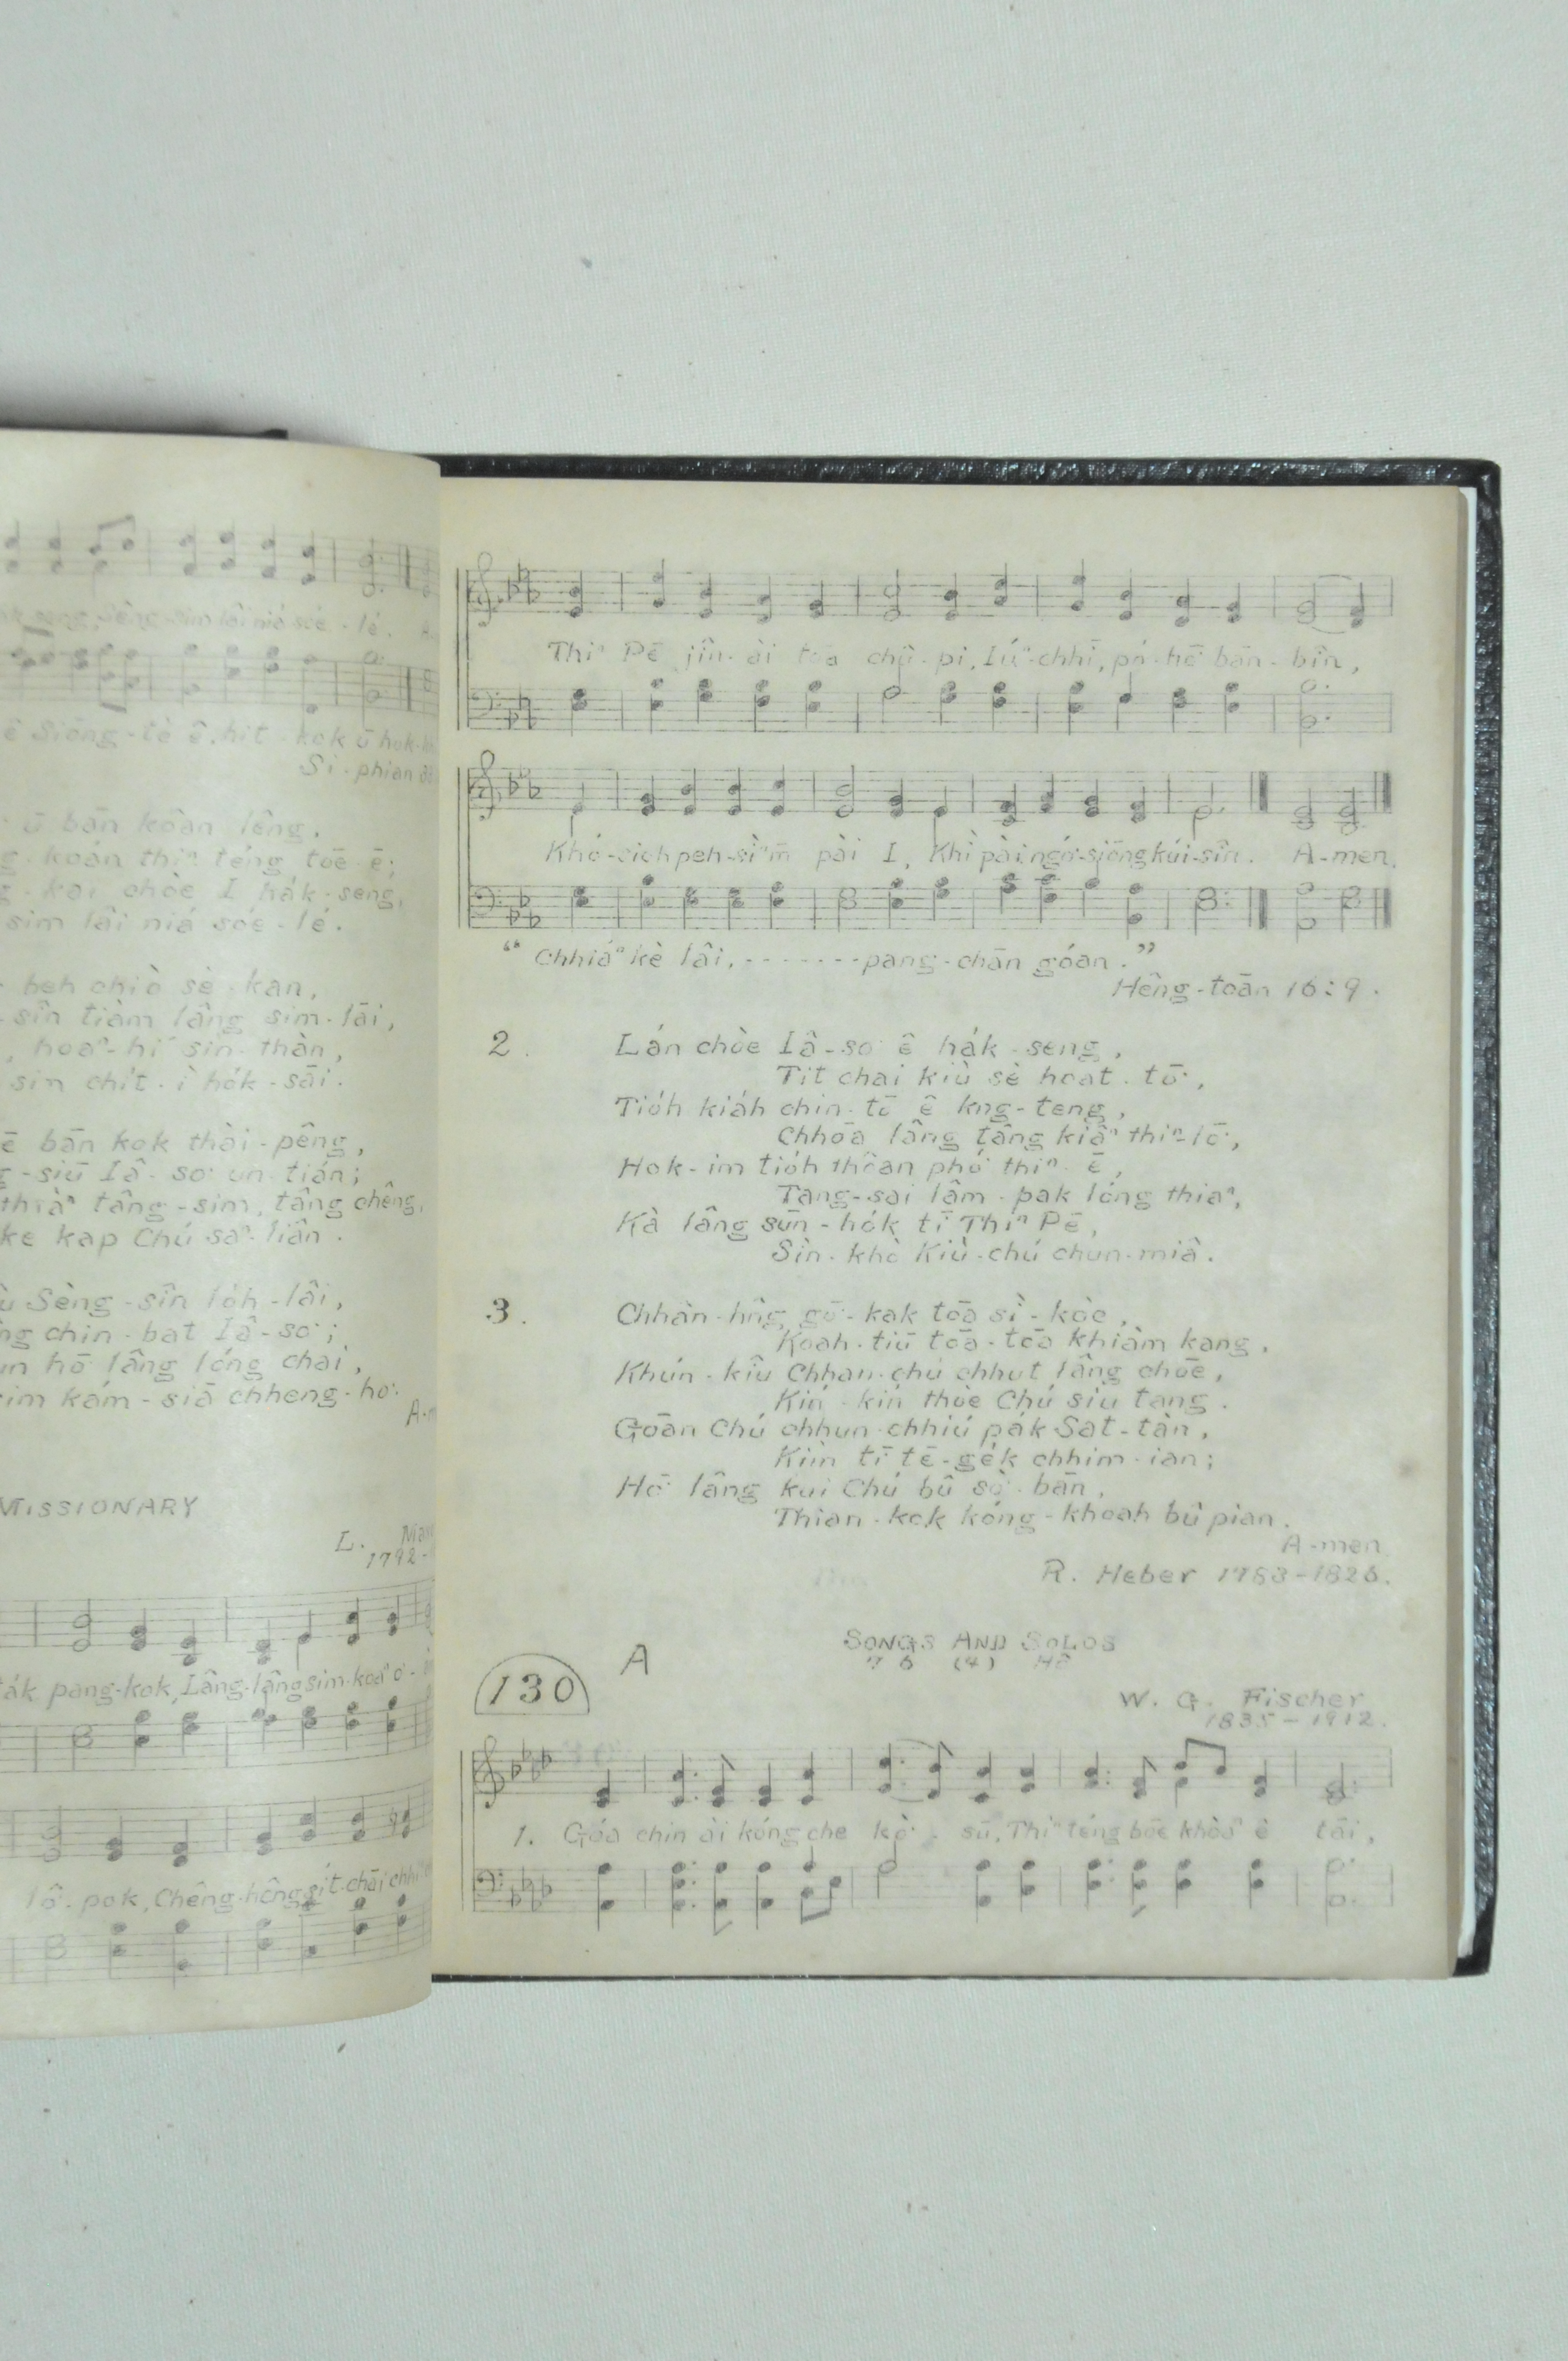 ê Siōng-tè ê, hit kok ū hok-
Si-phian
ū bān kôan lêng,
koán thiⁿ téng tōe ē;
chòe I ha̍k-seng,
sim lâi niá sóe-lé.
beh chiò sè-kan,
sîn tiàm lâng sim-lāi,
hoaⁿ-hí sin-thàn,
sin chit-ì ho̍k-sāi.
ē bān kok thài-pêng,
-siū Iâ-so͘ un-tián;
thiàⁿ tâng-sim, tâng chêng,
ke kap Chú saⁿ-liân.
Sèng-sîn lo̍h-lâi,
chin-bat Iâ-so͘;
hō͘ lâng lóng chai,
kám-siā chheng-ho͘.
MISSIONARY
L.
1792-
ta̍k pang-kok, Lâng-lâng sim-koaⁿ o͘-
lô-pok, Chêng-hông
Thiⁿ Pē jîn-ài tōa chû-pi, Iúⁿ-chhī, pó-hō͘ bān-bîn,
Khó-sioh peh-sìⁿ m̄ pài I, Khì pài ngó͘-siōng kúi-sîn. A-men.
"Chhiáⁿ kè lâi, - - - - - - - pang-chān góan."
Hêng-toān 16:9.
2. Lán chòe Iâ-so͘ ê ha̍k-seng,
Tit chai kiù sè hoat-tō͘,
Tio̍h kia̍h chin-tō ê kng-teng,
Chhōa lâng tâng kiâⁿ thiⁿ-lō͘,
Hok-im tio̍h thôan phó͘ thiⁿ ē,
Tang-sai lâm-pak lóng thiaⁿ,
Kà lâng sūn-ho̍k tī Thiⁿ Pē,
Sìn-khò Kiù-chú chun-miâ.
3. Chhân-hn̂g gō͘-kak tōa sì-kòe,
Koah-tiū tōa-tōa khiàm kang,
Khún-kiû Chhan-chú chhut lâng chōe,
Kín-kín thòe Chú siu tang.
Gōan Chú chhun-chhiú pa̍k Sat-tàn,
Kìm tī tē-ge̍k chhim-ian;
Hō͘ lâng kui Chú bû sò͘-bān,
Thian-kok kóng-khoah bû pian.
A-men
R. Heber 1783-1826.
SONGS AND SOLOS
130 A 7 6 (4) Hē
W. G. Fischer
1835-1912.
1. Góa chin ài kóng che kò͘-sū, Thiⁿ téng bōe khòaⁿ ê tāi,